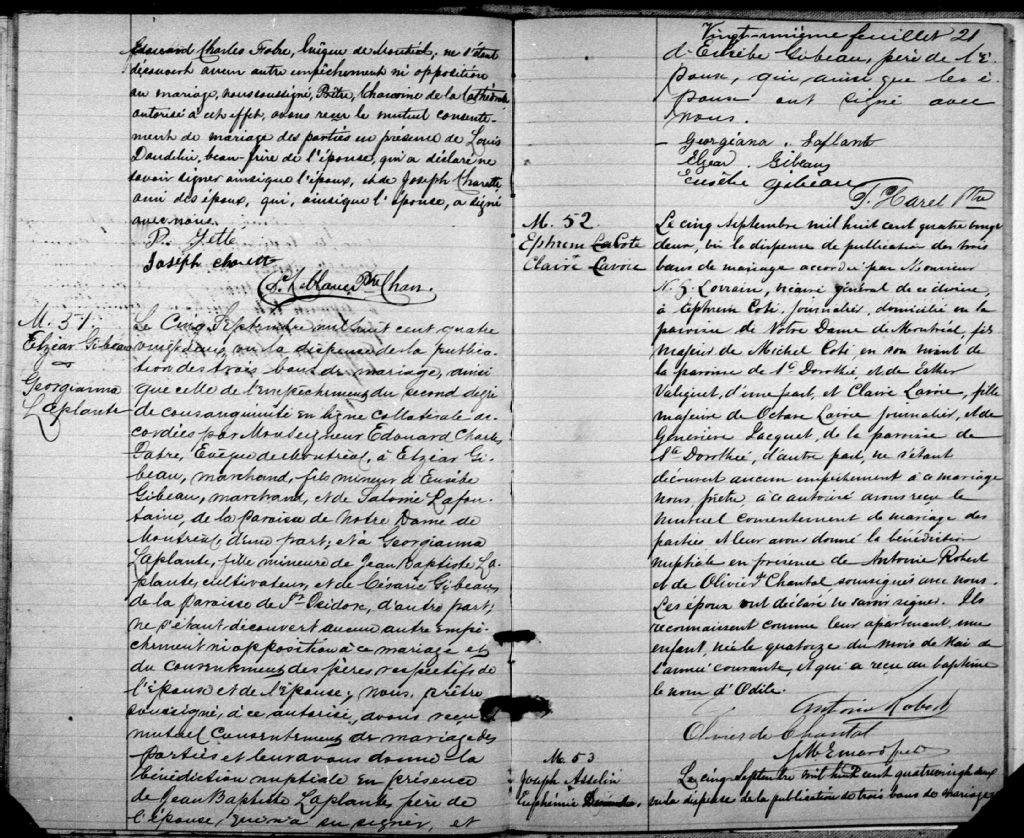 Edouard Charles Fabre, Evêque de Montréal, ne s'étant
découvert aucun autre empêchement ni opposition
au mariage, nous soussigné, Prêtre, Chanoine de la Cathédrale
autorisé à cet effet, avons reçu le mutuel consente-
ment de mariage des parties en présence de Louis
Daudelin, beau-frère de l'épouse, qui a déclaré ne
savoir signer ainsi que l'époux, et de Joseph Charette
ami des époux, qui, ainsi que l'épouse, a signé
avec nous.
P. Jette
Joseph Charett
Leblanc Ptre Chan.
M. 51
Elzéar Gibeau
Georgianna
Laplante
Le Cinq Septembre mil huit cent quatre
vingt deux, vu la dispense de la publica-
tion des trois bans de mariage, ainsi
que celle de l'empêchement du second degré
de consanguinité en ligne collatérale ac-
cordées par Monseigneur Edouard Charles
Fabre, Evêque de Montréal, à Elzéar Gi-
beau, marchand, fils mineur d'Eusèbe
Gibeau, marchand, et de Salomé Lafon-
taine, de la Paroisse de Notre Dame de
Montréal d'une part; et à Georgianna
Laplante, fille mineure de Jean Baptiste La-
plante, cultivateur, et de Césarie Gibeau,
de la Paroisse de St Isidore, d'autre part;
ne s'étant découvert aucun autre empê-
chement ni opposition à ce mariage et
du consentement des pères respectifs de
l'Époux et de l'Épouse, nous, prêtre
soussigné, à ce autorisé, avons reçu le
mutuel consentement de mariage des
parties et leur avons donné la
bénédiction nuptiale en présence
de Jean Baptiste Laplante, père de
l'épouse, qui n'a su signer, et
Vingt-unième feuillet 21
d'Eusèbe Gibeau, père de l'É-
poux, qui ainsi que les é-
poux ont signé avec
nous.
Georgiana Laplant
Elzear Gibeau
Eusèbe Gibeau
Harel Ptre
M. 52
Ephrem Coté
Claire Lavoie
Le cinq Septembre mil huit cent quatre vingt
deux, vu la dispense de publication des trois
bans de mariage accordée par Monsieur
N. Z. Lorrain, vicaire général de ce diocèse,
à Ephrem Coté, journalier, domicilié en la
paroisse de Notre Dame de Montréal, fils
majeur de Michel Coté en son vivant de
la paroisse de Ste Dorothée et de Esther
Valiquet, d'une part, et Claire Lavoie, fille
majeure de Octave Lavoie journalier, et de
Geneviève Jacquet, de la paroisse de
Ste Dorothée, d'autre part, ne s'étant
découvert aucun empêchement à ce mariage
nous prêtre, à ce autorisé avons reçu le
mutuel consentement de mariage des
parties et leur avons donné la bénédiction
nuptiale en présence de Antoine Robert
et de Olivier de Chantal, soussignés avec nous.
Les époux ont déclaré ne savoir signer. Ils
reconnaissent comme leur apartenant, une
enfant, née le quatorze du mois de Mai de
l'année courante, et qui a reçu au baptême
le nom d'Odile.
Antoine Robert
Olivier de Chantal
Emard
M. 53
Joseph Asselin
Euphémie
Le cinq Septembre mil huit cent quatre vingt deux
vu la dispense de la publication de trois bans de mariage